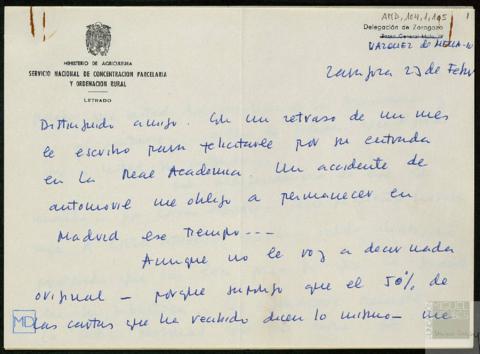 AMD, 104,1,195
1
Delegación de Zaragoza
VAZQUEZ de MELLA
MINISTERIO DE AGRICULTURA
SERVICIO NACIONAL DE CONCENTRACION PARCELARIA
Y ORDENACION RURAL
LETRADO
Zaragoza 23 de
Distinguido amigo. Con un retraso de un mes
le escribo para felicitarle por su entrada
en la Real Academia. Un accidente de
automovil me obligo a permanecer en
Madrid ese tiempo---
Aunque no le voy a decir nada
original — porque supongo que el 50% de
las cartas que ha recibido dicen lo mismo — me
MD